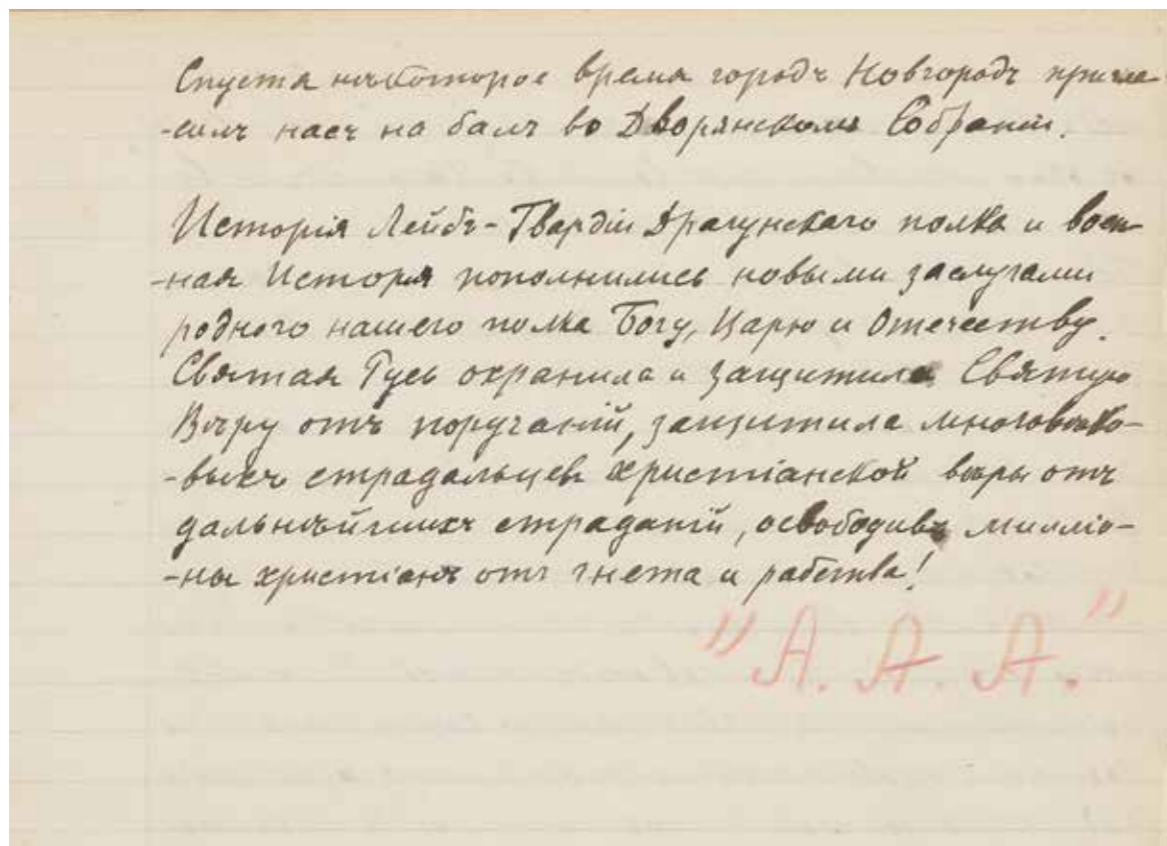 Спустя нѣкоторое время городъ Новгородъ пригла
-силъ насъ на балъ во Дворянскомъ Собраніи.
Исторія Лейбъ-Гвардіи Драгунскаго полка и воен-
-ная Исторія пополнились новыми заслугами
роднаго нашего полка Богу, Царю и Отечеству.
Святая Русь охранила и защитила Святую
Вѣру отъ поруганій, защитила многовѣко-
-выхъ страдальцевъ христіанской вѣры отъ
дальнѣйшихъ страданій, освободивъ милліо-
-ны христіанъ отъ гнета и рабства!
"А. А. А."